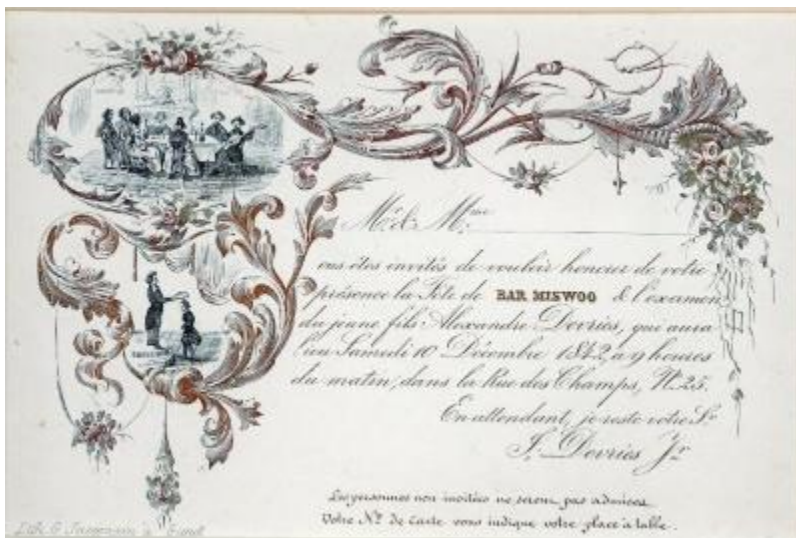 Mr. & Mme.
ous êtes invités de vouloir honorer de votre
présence la Fête de BAR MISWOO & l'examen
du jeune fils Alexandre Devries, que aura
lieu Samedi 10 Décembre 1842, a 9 heures
du matin, dans la Rue des Champs, No. 25.
En attendant, je reste votre Sr.
J. Devries Jr.
Les personnes non invitées ne seront pas admises.
Votre No. de Carte vous indique votre place à table.
Lith. G. à Gand